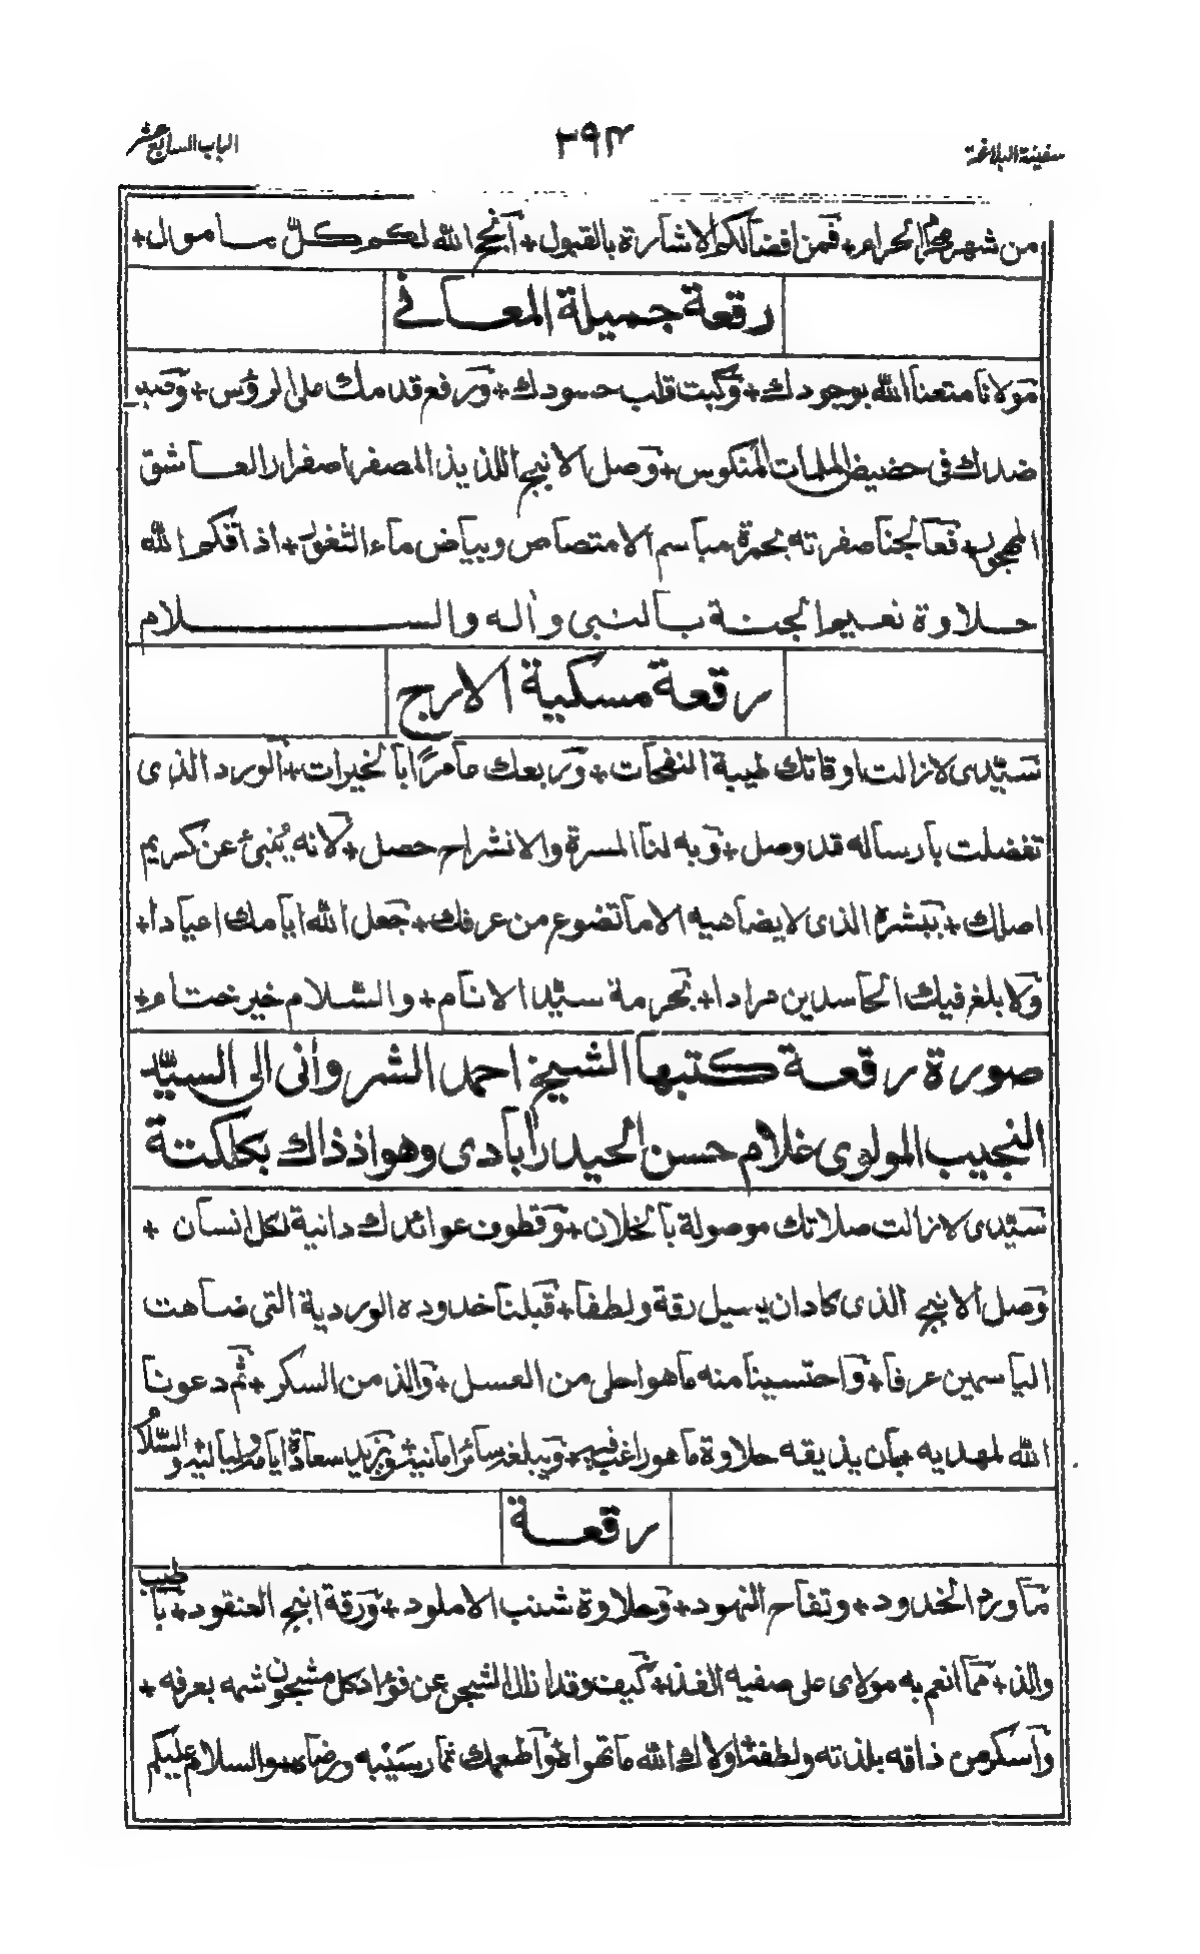 سفينة البلاغة
٢٩٣
الباب السابع عشر
من شهر محرم الحرام + فمن افضالكم الاشارة بالقبول + آنجح الله لكم كل مامول +
رقعة جميلة المعاني
مَولانا متعنا الله بوجودك + وَكبت قلب حسودك + وَرفع قدمك على الرؤس + وَصير
ضدك فى حضيض الملمات المنكوس + وَصل الانبج اللذيذ المصفر اصفرار العاشق
المهجور + فَعالجنا صفرته بحمرة مباسم الامتصاص وبياض ماء الثغور + اذاقكم الله
حلاوة نعيم الجنة بالنبى واله والسلام
رقعة مسكية الارج
سَيّدى لازالت اوقاتك طيبة النفحات + وَربعك عامرًا بالخيرات + الورد الذى
تفضلت بارساله قد وصل + وَبه لنا المسرة والانشراح حصل + لانه يُنبئ عن كريم
اصلك + ببشره الذى لايضاهيه الا ما تضوع من عرفك + جَعل الله ايامك اعيادا +
وَلا بلغ فيك الحاسدين مرادا + بحرمة سيّد الانام + والسّلام خير ختام +
صورة رقعة كتبها الشيخ احمد الشروانى الى السيّد
النجيب المولوى غلام حسن الحيدرابادى وهو اذ ذاك بكلكتة
سَيّدى لازالت صلاتك موصولة بالخلان + وَقطوف عوائدك دانية لكل انسان +
وَصل الانبج الذى كاد ان يسيل رقة ولطفا + قَبلنا خدوده الوردية التى ضاهت
الياسمين عرفا + وَاحتسينا منه ما هو احلى من العسل + وَالذ من السكر + ثم دعونا
الله لمهديه + بان يذيقه حلاوة ما هو راغب فيه + وَيبلغه سائر امانيه ويزيد سعادة ايامه ولياليه والسّلام
رقعة
مَا ورد الخدود + وتفاح النهود + وَحلاوة شنب الاملود + وَرقة انبج العنقود + باطيب
والذ + مما انعم به مولاى على صفيه الفذ + كيف وقد ازال الشجن عن فؤاد كل مشجون شمه بعرفه +
وَاسكر من ذاقه بلذته ولطفه اولاك الله ما تهواه واطعمك ثمار سَيْبه ورضاه والسلام عليكم